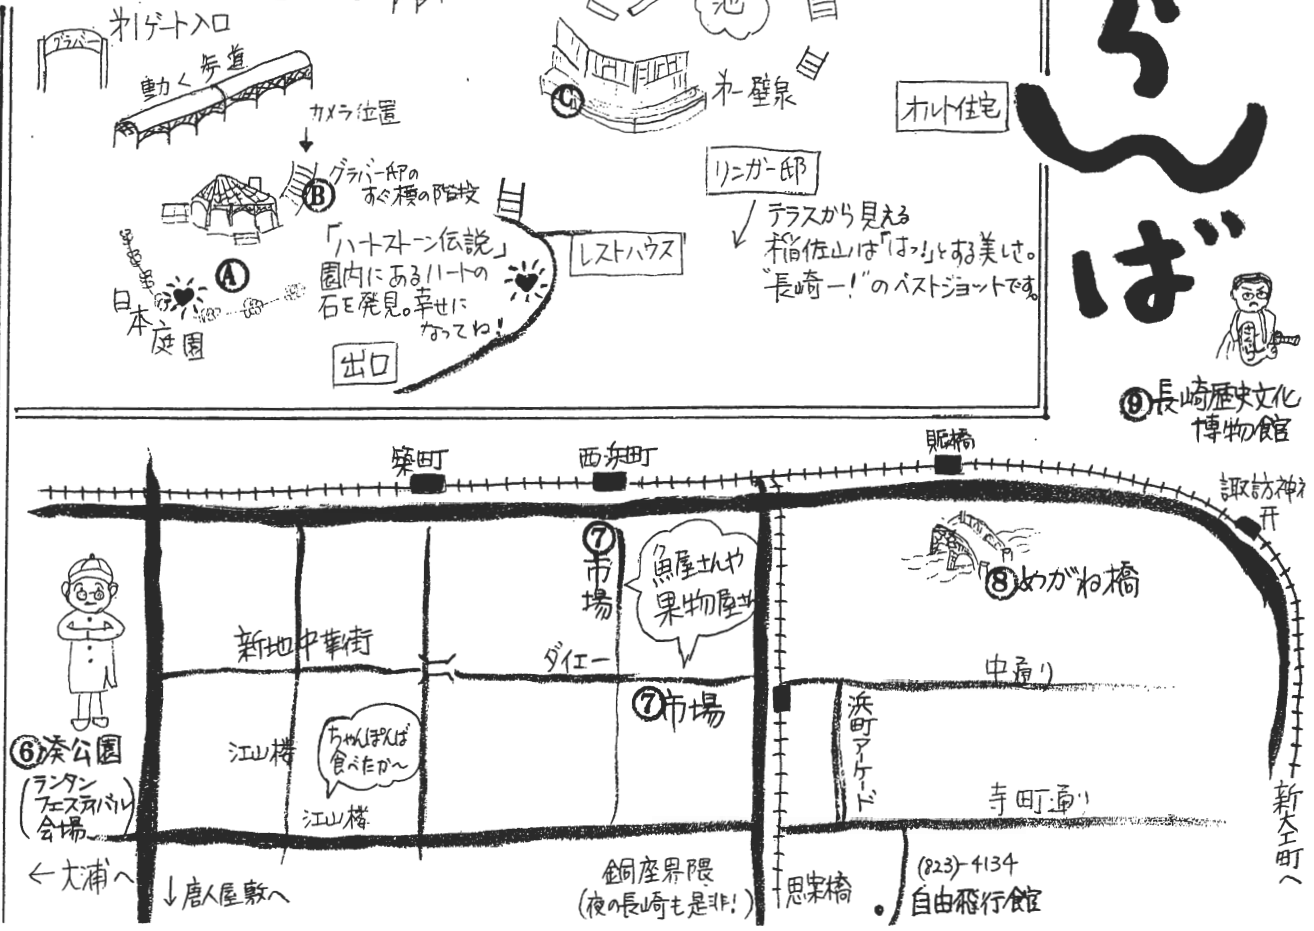 グラバー
オ1ゲート入口
動く歩道
カメラ位置
B
グラバー邸の
すぐ横の階段
A
「ハートストーン伝説」
園内にあるハートの
石を発見。幸せに
なってね!
日本庭園
出口
レストハウス
池
C
オ一壁泉
オルト住宅
リンガー邸
テラスから見える
稲佐山は「はっ!」とする美しさ。
"長崎一!"のベストショットです。
らんば
⑨長崎歴史文化
博物館
築町
西浜町
賑橋
諏訪神社
⑦市場
魚屋さんや
果物屋さ
⑧めがね橋
新地中華街
ダイエー
⑦市場
中通り
浜町アーケード
⑥湊公園
(ランタン
フェスティバル
会場)
江山楼
ちゃんぽんば
食べたか〜
江山楼
寺町通り
新大工町へ
←大浦へ
↓唐人屋敷へ
銅座界隈
(夜の長崎も是非!)
思案橋
(823)-4134
自由飛行館